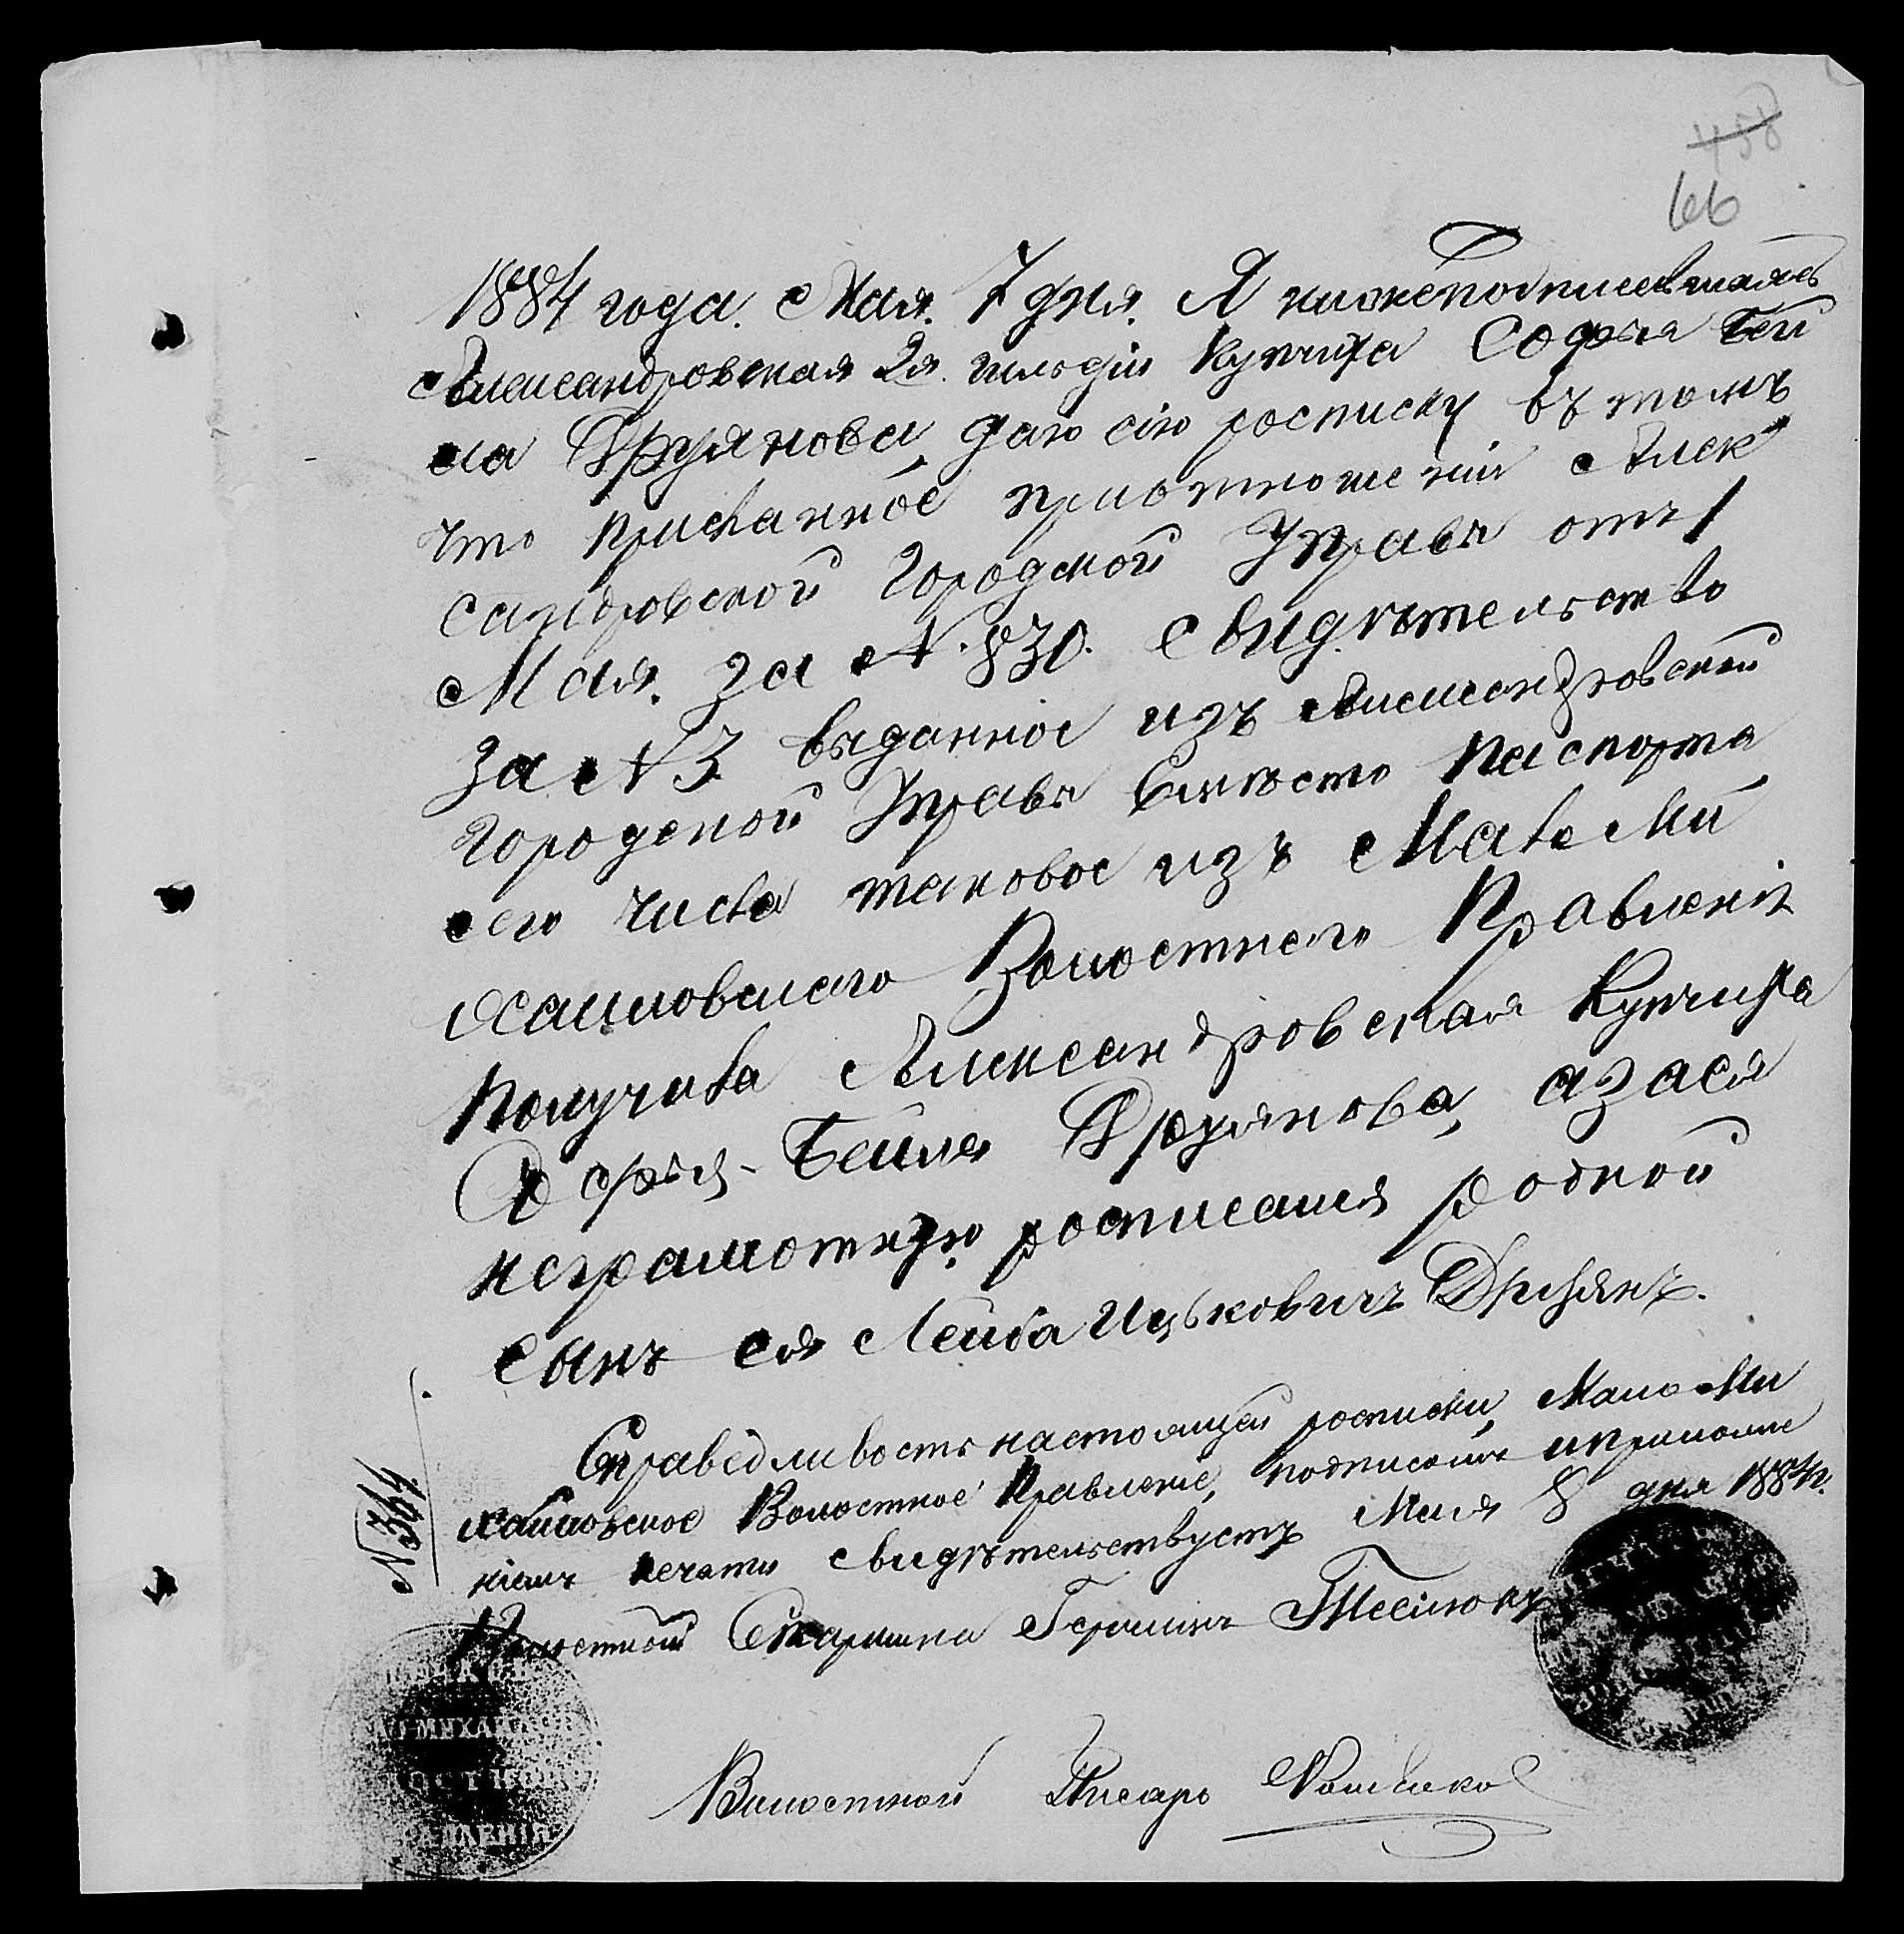 458
66
1884 года. Мая. 7 дня. Я нижеподписавшаяся
Александровская 2й. гильдіи Купчиха Софья Бей
ла Друянова, даю сію росписку въ томъ
что присланное приотношеніи Алек
сандровской Городской Управы отъ 1
Мая. за №. 830. свидѣтельство
за № 3 выданное изъ Александровской
Городской Управы вмѣсто паспорта
сего числа таковое изъ Мало Ми
хайловскаго Волостнаго Правленія
получила Александровская Купчиха
Софья-Бейля Друянова, а за ея
неграмотную росписался родной
сынъ ея Лейба Ицковичъ Друянъ.
Справедливость настоящей росписки, Мало Ми
хайловское Волостное Правленіе, подписомъ и приложе
ніемъ печати свидѣтельствуетъ Мая 8 дня 1884 г.
№ 364
Волостной Старшина Герасимъ
Волостной Писарь
МИХАЙЛО
ПРАВЛЕНІЯ